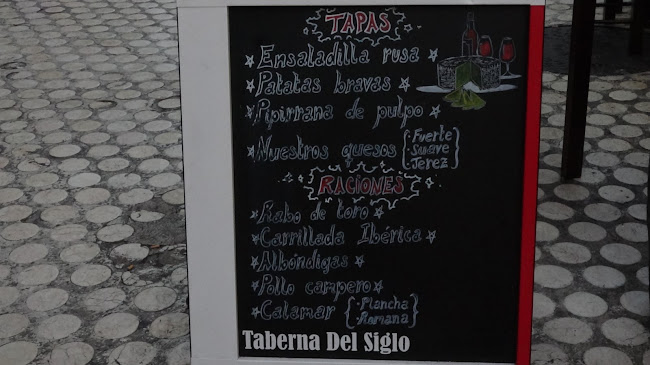 TAPAS
Ensaladilla rusa
Patatas bravas
Pipirrana de pulpo
Nuestros quesos { · Fuerte
· Suave
· Jerez }
RACIONES
Rabo de toro
Carrillada Ibérica
Albóndigas
Pollo campero
Calamar { · Plancha
· Romana }
Taberna Del Siglo